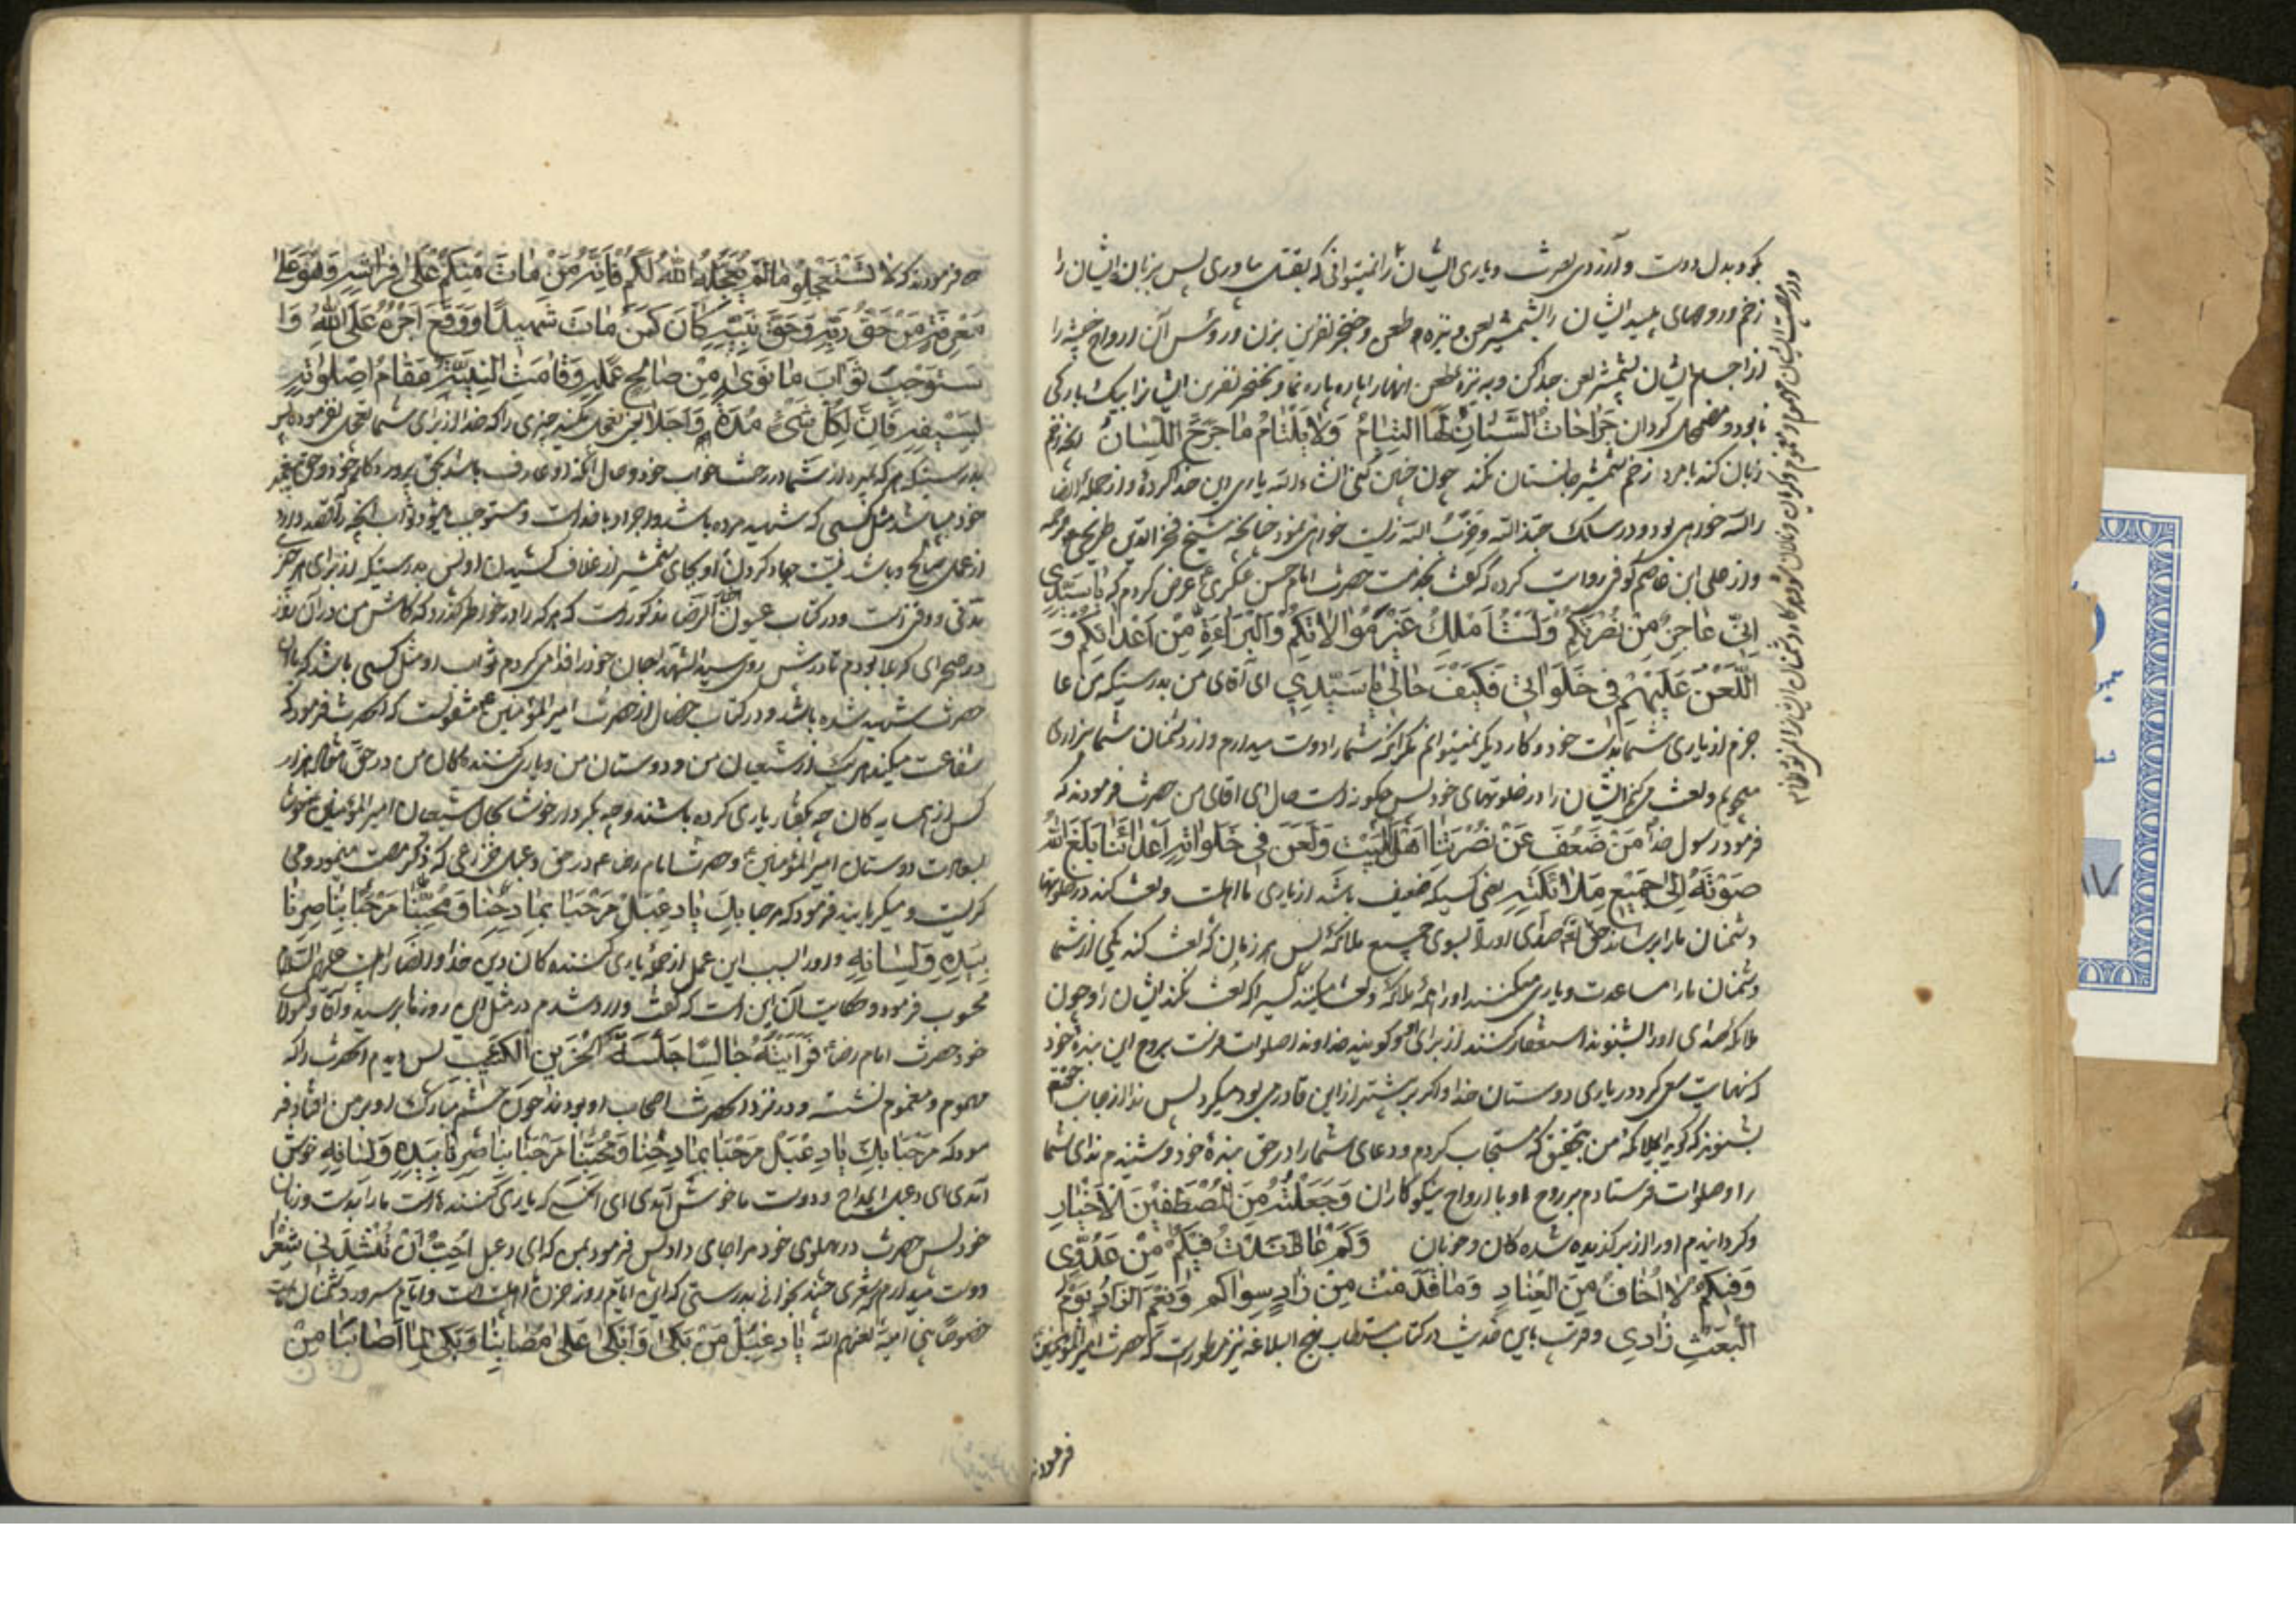 بود بدل دوست و آرزوی نصرت و یاری ایشان را نمیتوانی که بفعل بیاوری پس بزبان ایشان را
زخم و روحهای پلید ایشان را بشمشیر لعن و نیزه طعن و خنجر نفرین بزن و رؤس آن ارواح خبیثه را
از اجسام ایشان بشمشیر لعن جدا کن و به نیزه طعن انها را پاره پاره نما و بخنجر نفرین ایشانرا بیکبارگی
نابود و مضمحل گردان جَراحاتُ السِّنانِ لَهَا الْتِیامُ وَلا یَلْتامُ ما جَرَحَ اللِّسانُ انچه زخم
زبان کند با مرد زخم شمشیر جانستان نکند چون چنین کنی انشاءالله یاری دین خدا کرده و از جمله انصار
الله خواهی بود و در سلک جند الله و حزب الله زیست خواهی نمود چنانچه شیخ فخر الدین طریحی
و از علی ابن عاصم کوفی روایت کرده که گفت بخدمت حضرت امام حسن عسکری ع عرض کردم که یا سَیِّدی
اِنّی عاجِزٌ مِنْ نُصْرَتِکُمْ وَلَسْتُ اَمْلِکُ غَیْرَ مُوالاتِکُمْ وَالْبَراءَةِ مِنْ اَعْدائِکُمْ وَ
اللَّعْنَ عَلَیْهِمْ فی خَلَواتی فَکَیْفَ حالی یا سَیِّدی ای آقای من بدرستیکه من عا
جزم از یاری شما بدست خود و کار دیگر نمیتوانم مگر انکه شما را دوست میدارم و از دشمنان شما بیزاری
میجویم و لعنت میکنم ایشان را در خلوتهای خود پس چگونه است حال ای اقای من حضرت فرمودند که
فرمود رسول خدا مَنْ ضَعُفَ عَنْ نُصْرَتِنا اَهْلَ الْبَیْتِ وَلَعَنَ فی خَلَواتِهِ اَعْدائَنا بَلَّغَ اللهُ
صَوْتَهُ اِلی جَمیعِ مَلائِکَتِهِ یعنی کسیکه ضعیف باشد از یاری ما اهلبیت و لعنت کند در خلوتها
دشمنان ما را برساند حق تع صدای او را بسوی جمیع ملائکه پس هر زمان که لعنت کند یکی از شما
دشمنان ما را مساعدت و یاری میکنند او را ملائکه و لعنت میکنند کسیرا که لعنت نکند ایشان را و چون
ملائکه صدای او را بشنوند استغفار کنند از برای او و گویند خداوندا صلوات فرست بروح این بنده خود
که نهایت سعی کرد در یاری دوستان خدا و اگر بیشتر از این قادر می بود میکرد پس ندا از جانب
بشنوند که گوید ای ملائکه من بتحقیق که مستجاب کردم دعای شما را در حق بنده خود و شنیدم ندای شما
را و صلوات فرستادم بر روح او با ارواح نیکوکاران وَجَعَلْتُهُ مِنَ الْمُصْطَفَیْنَ الْاَخْیارِ
و گردانیدم او را از برگزیده شده کان و خوبان وَکَمْ عانَدْتُ فیکُمْ مِنْ عَدُوّی
وَفیکُمْ لا اُخافُ مِنَ الْعِنادِ وَما قَدَّمْتُ مِنْ زادٍ سِواکُم وَنِعْمَ الزّادُ یَوْمَ
الْبَعْثِ زادی و قریب باین حدیث در کتاب مستطاب نهج البلاغه نیز مسطور است که حضرت امیر المؤمنین
فرمودند
فرمودند که لا تَسْتَعْجِلُوا ما لَمْ یُعَجِّلْهُ اللهُ لَکُمْ فَاِنَّهُ مَنْ ماتَ مِنْکُمْ عَلی فِراشِهِ وَهُوَ عَلی
مَعْرِفَةِ حَقِّ رَبِّهِ وَحَقِّ نَبِیِّهِ کانَ کَمَنْ ماتَ شَهیداً وَوَقَعَ اَجْرُهُ عَلَی اللهِ وَا
سْتَوْجَبَ ثَوابَ ما نَوی مِنْ صالِحِ عَمَلِهِ وَقامَتِ النِّیَّةُ مَقامَ اِصْلاتِهِ
لِسَیْفِهِ فَاِنَّ لِکُلِّ شَیْءٍ مُدَّةً وَاَجَلاً یعنی تعجیل مکنید چیزی را که خدا از برای شما تعجیل نفرموده
بدرستیکه هر که بمیرد از شما در رختخواب خود و حال آنکه او عارف باشد بحق پروردگار خود و حق پیغمبر
خود میباشد مثل کسی که شهید مرده باشد و اجر او با خداست و مستوجب میشود ثواب انچه را قصد دارد
از عمل صالح و باشد نیت جهاد کردن او بجای شمشیر از غلاف کشیدن او پس بدرستیکه از برای هر چیز
مدتی و وقتی است و در کتاب عیون الرضا مذکور است که هر که را در خاطر گذرد که کاش من در آن روز
در صحرای کربلا بودم تا در پیش روی سید الشهدا جان خود را فدا میکردم ثواب او مثل کسی باشد که با ان
حضرت شهید شده باشد و در کتاب خصال از حضرت امیر المؤمنین ع منقولست که انحضرت فرمود که
شفاعت میکند هر یک از شیعیان من و دوستان من و یاری کننده کان من در حق هزار
کس از همسایه کان چه بگفتار یاری کرده باشند و چه بکردار خوشا بحال شیعیان امیر المؤمنین و خوشا
بسعادت دوستان امیر المؤمنین و حضرت امام رضا ع در حق دعبل خزاعی که ذکر مصیبت مینمود و می
گریست و میگریانید فرمود که مرحبا بِکَ یا دِعْبِلْ مَرْحَباً بِمادِحِنا وَمُحِبِّنا مَرْحَباً بِناصِرِنا
بِیَدِهِ وَلِسانِهِ و او را بسبب این عمل از جمله یاری کننده کان دین خدا و انصار اهلبیت علیهم السلام
محسوب فرمود و حکایت آن این است که گفت وارد شدم در مثل این روزها بر سید و آقا و مولای
خود حضرت امام رضا فَرَاَیْتُهُ جالِساً جَلْسَةَ الْحَزینِ الْکَئیبِ پس دیدم انحضرت را که
مهموم و مغموم نشسته و در نزد انحضرت اصحاب او بودند چون چشم مبارک او بر من افتاد فر
مود که مَرْحَباً بِکَ یا دِعْبِلْ مَرْحَباً بِمادِحِنا وَمُحِبِّنا مَرْحَباً بِناصِرِنا بِیَدِهِ وَلِسانِهِ خوش
آمدی ای دعبل ای مداح و دوست ما خوش آمدی ای انکسی که یاری کننده است ما را بدست و زبان
خود پس حضرت در پهلوی خود مرا جای داد پس فرمود بمن که ای دعبل اُحِبُّ اَنْ تُنْشِدَنی شِعْراً
دوست میدارم که شعری چند بخوانی بدرستی که این ایام روز حزن اهلبیت است و ایام سرور دشمنان ماست
خصوصاً بنی امیه لعنهم الله یا دِعْبِلُ مَنْ بَکی وَاَبْکی عَلی مُصابِنا وَبَکی لِما اَصابَنا مِنْ